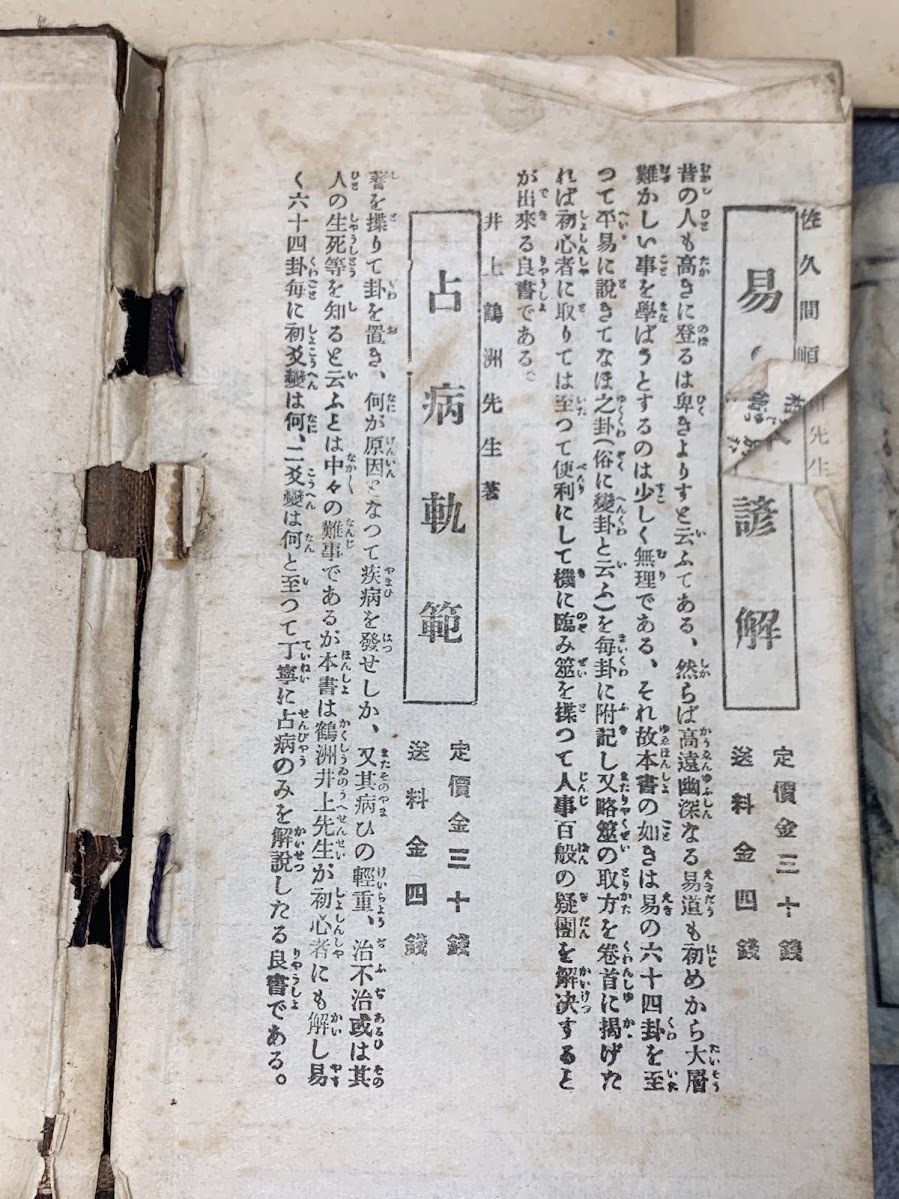 佐久間順
先生
易
諺解
定價金三十錢
送料金四錢
昔の人も高きに登るは卑きよりすと云ふてある、然らば高遠幽深なる易道も初めから大層
難かしい事を學ばうとするのは少しく無理である、それ故本書の如きは易の六十四卦を至
つて平易に說きてなほ之卦(俗に變卦と云ふ)を每卦に附記し又略筮の取方を卷首に揭げた
れば初心者に取りては至つて便利にして機に臨み筮を揲つて人事百般の疑團を解決すると
が出來る良書である。
井上鶴洲先生著
占病軌範
定價金三十錢
送料金四錢
蓍を揲りて卦を置き、何が原因となつて疾病を發せしか、又其病ひの輕重、治不治或は其
人の生死等を知ると云ふとは中々の難事であるが本書は鶴洲井上先生が初心者にも解し易
く六十四卦每に初爻變は何、二爻變は何と至つて丁寧に占病のみを解說したる良書である。